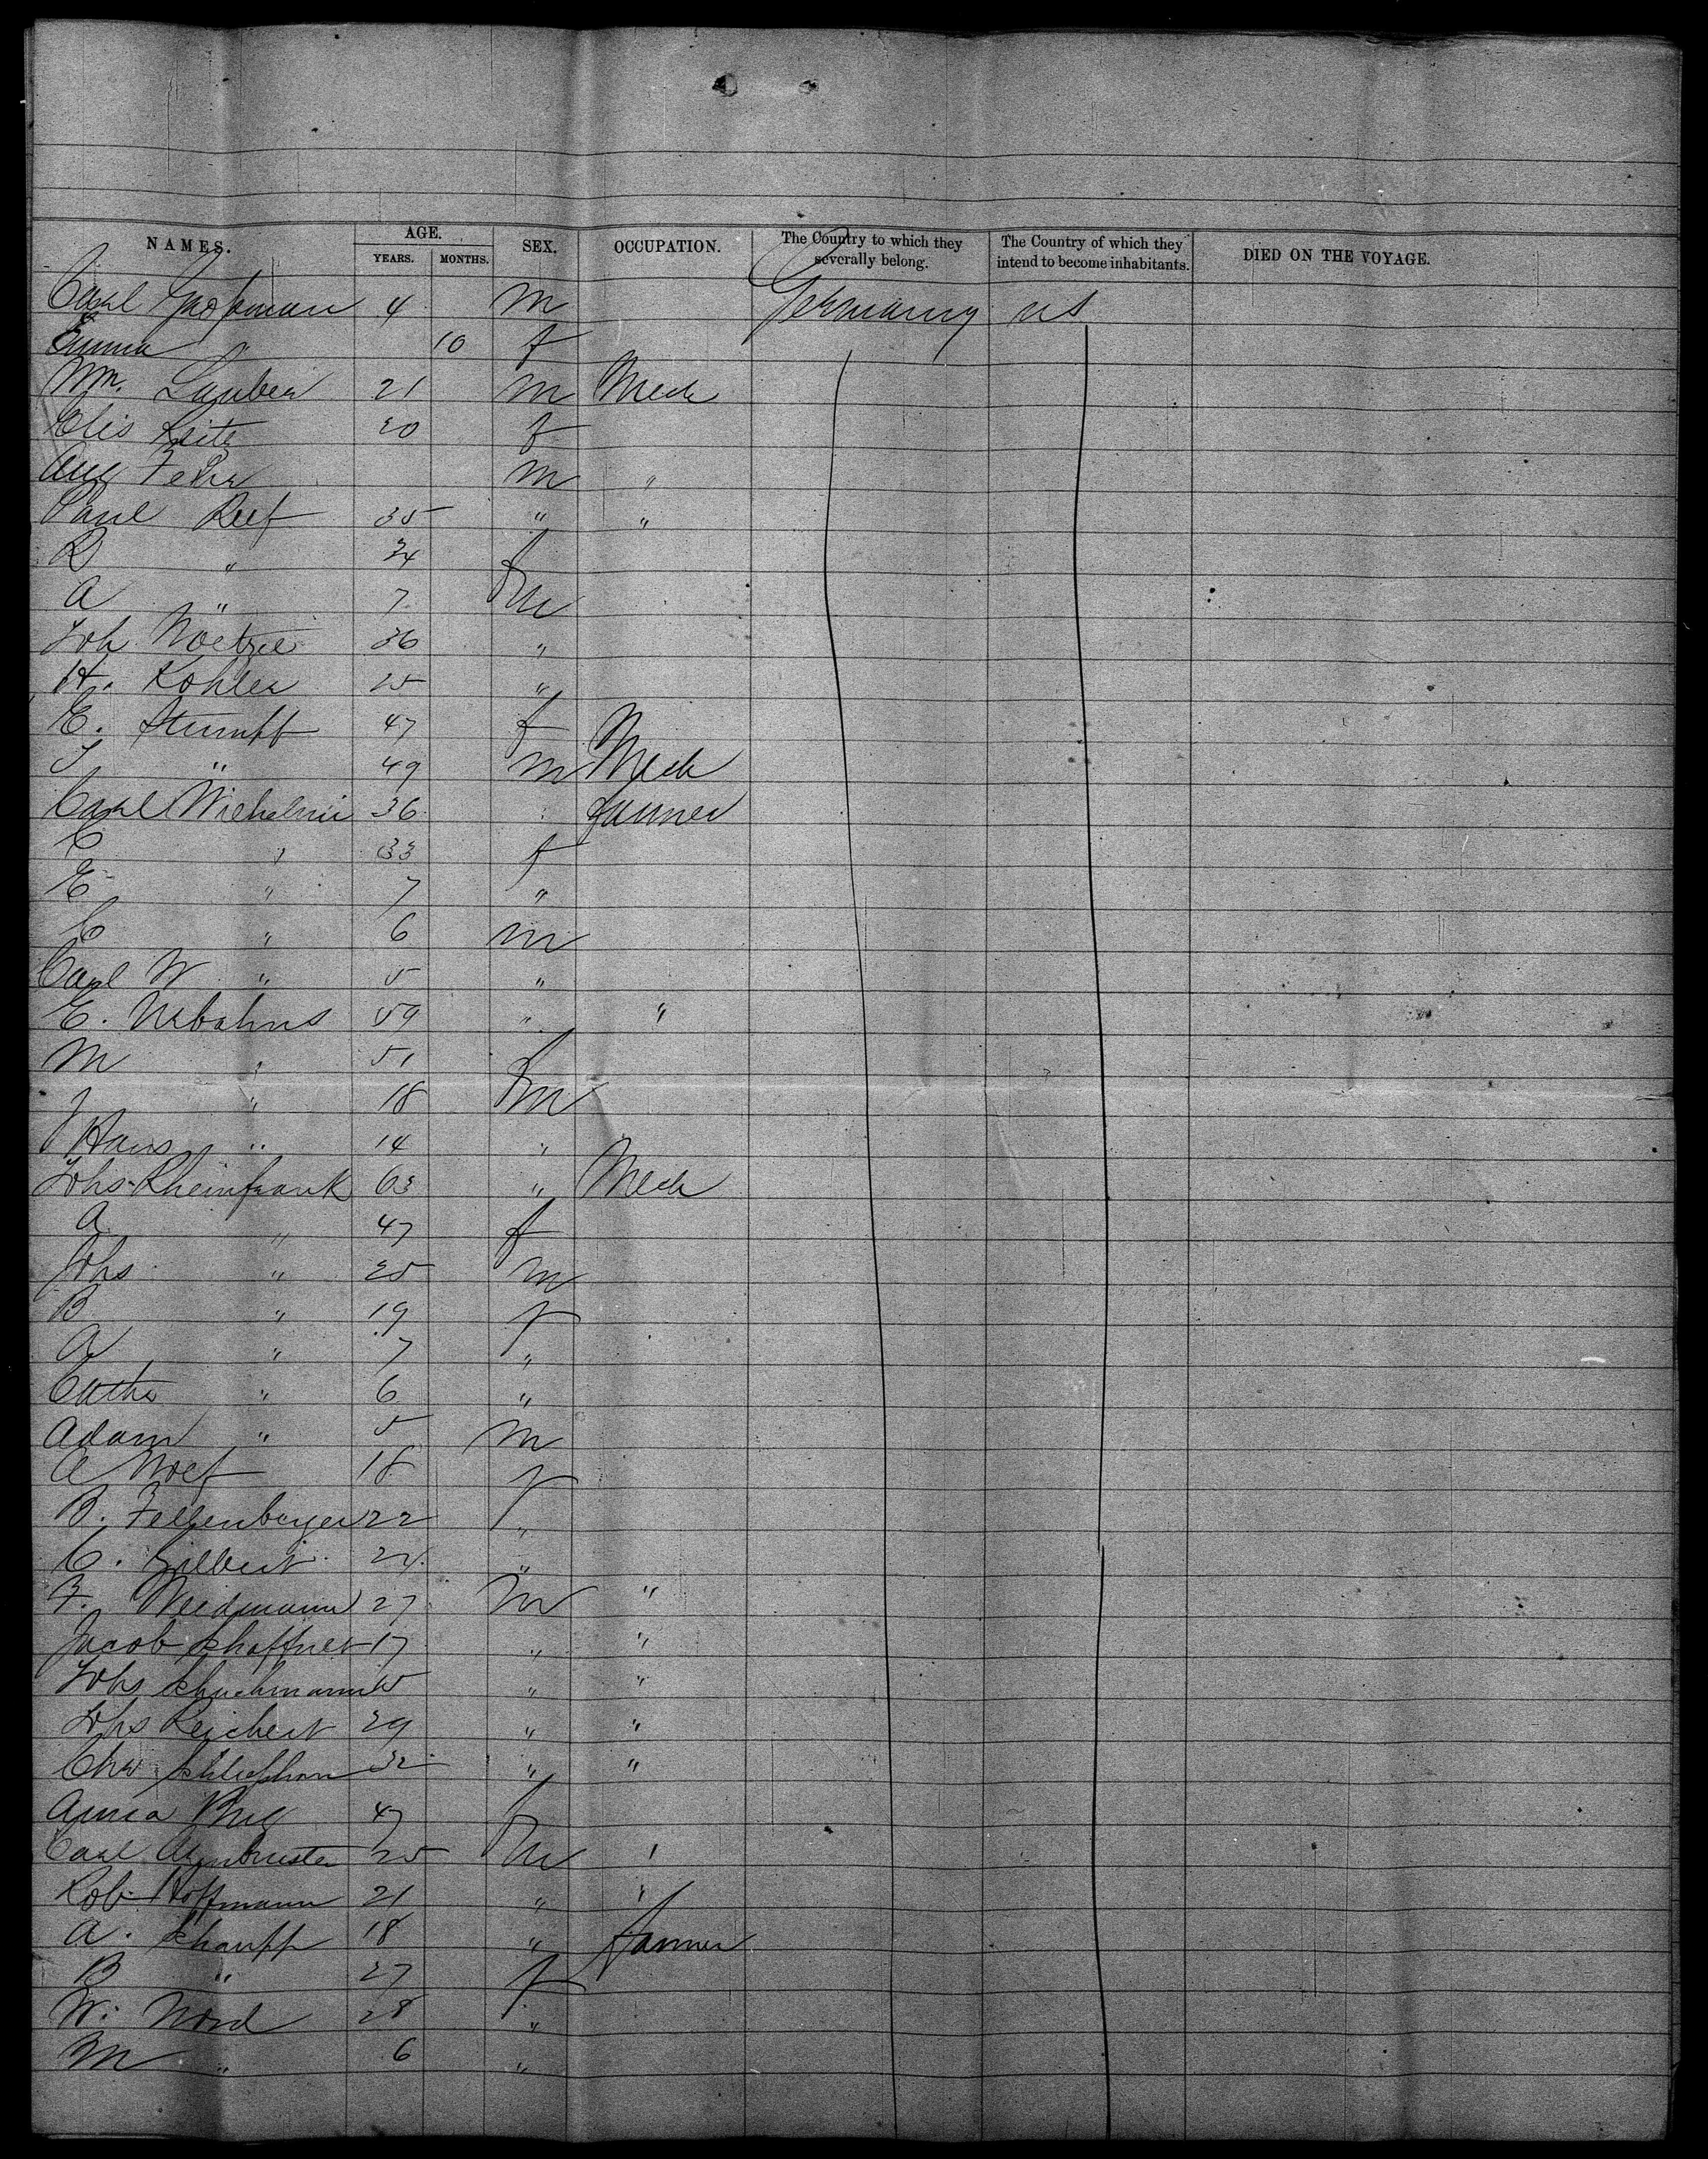 NAMES. AGE. SEX. OCCUPATION. The Country to which they severally belong. The Country of which they intend to become inhabitants. DIED ON THE VOYAGE.
YEARS. MONTHS.
Carl Großmann 4 m Germany US
Emma " 10 f
Wm. Lauber 21 m Mech
Elis Reitz 20 f
Aug Fehr m "
Paul Reef 35 " "
D " 34 f
A " 7 m
Joh Woetzel 36 "
H. Kohler 25 "
E. Stumpf 47 f
J " 49 m Mech
Carl Wilhelmi 36 " farmer
C " 33 f
E " 7 "
C " 6 m
Carl W " 5 "
E. Nebahns 59 " "
M " 51 f
J " 18 m
Hans " 14 "
Johs Rheinfrank 63 " Mech
A " 47 f
Johs " 25 m
B " 19 f
A " 7 "
Cathr " 6 "
Adam " 5 m
A Wolf 18 f
B. Fellenberger 22 "
C. Gilbert 24 "
F. Weidmann 27 m "
Jacob Schaffner 17 " "
Johs Schuchmann " "
Johs Reichert 29 " "
Chr 32 " "
Anna 47 f
Carl Armbruster 25 m "
Rob Hoffmann 21 " "
A. Schaupp 18 " farmer
B " 27 f
W. Nord 28 "
M " 6 "